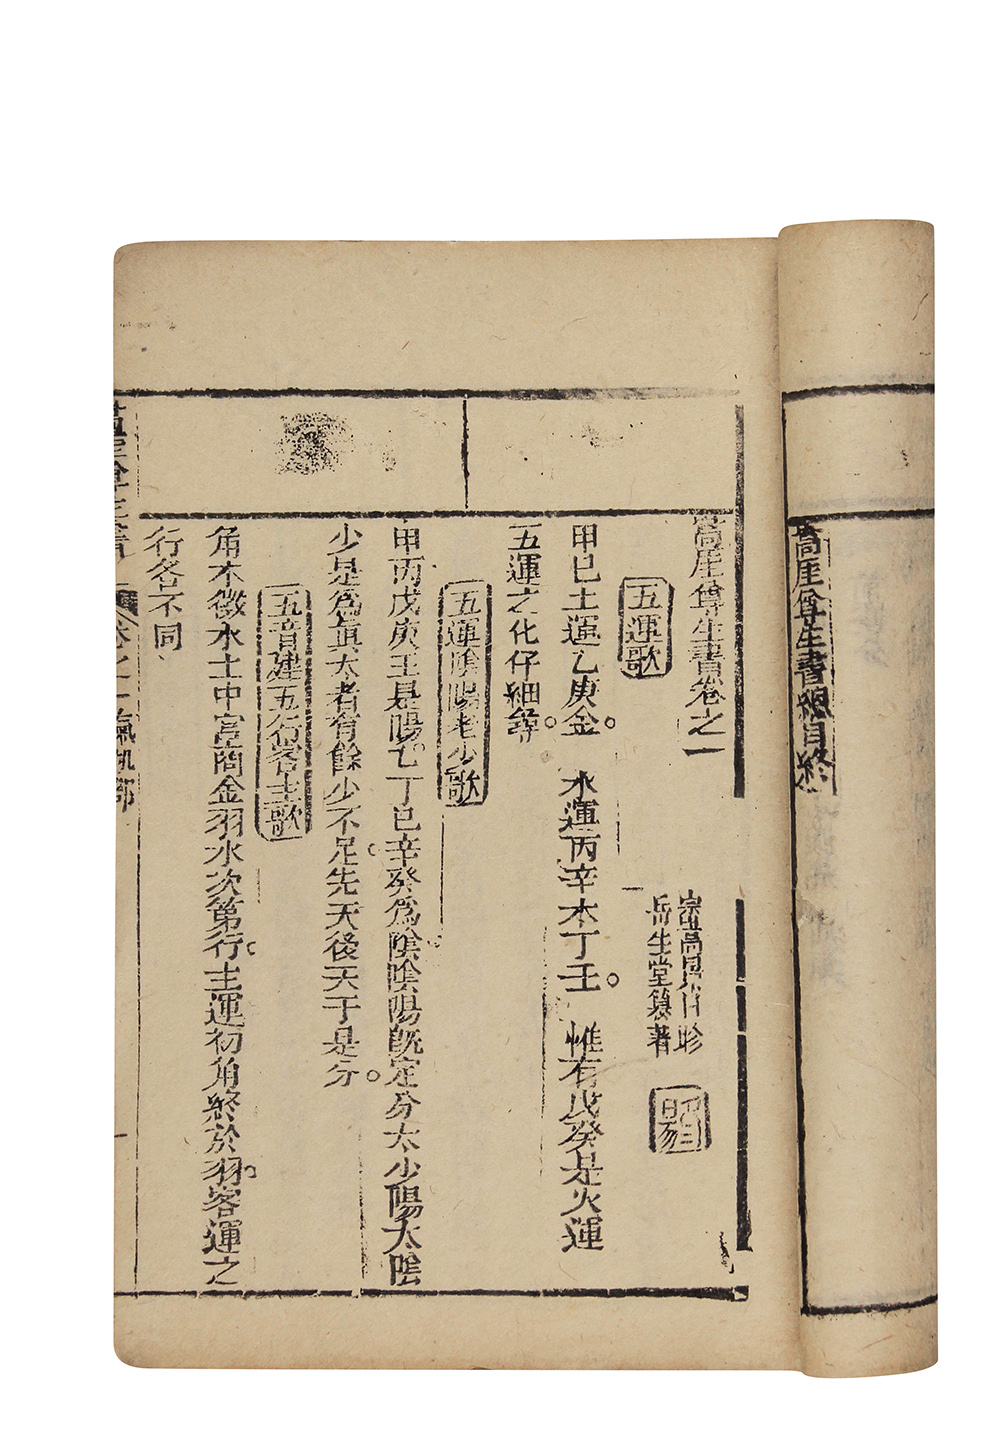 嵩厓尊生書總目終
嵩厓尊生書卷之一
岳生堂纂著
五運歌
甲巳土運乙庚金。水運丙辛木丁壬。惟有戊癸是火運
五運之化仔細尋。
五運陰陽老少歌
甲丙戊庚壬是陽。乙丁巳辛癸為陰陰陽既定分太少陽太陰
少是為真太者有餘少不足先天後天于是分。
五音建五行客主歌
角木徵火土中宮商金羽水次第行。主運初角終於羽。客運之
行各不同
嵩厓尊生書 卷之一 氣機部